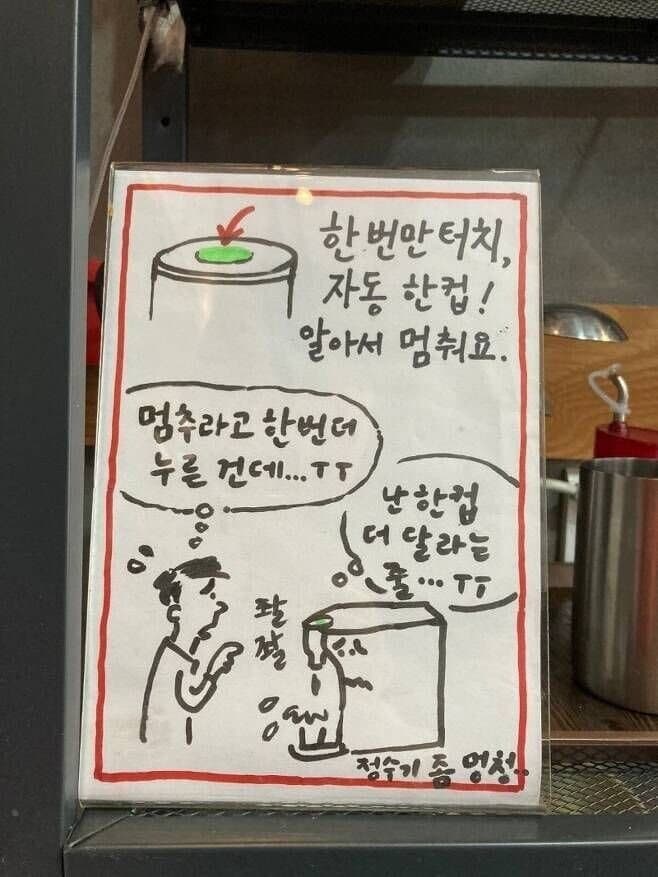 한번만터치,
자동 한컵!
알아서 멈춰요.
멈추라고 한번더
누른 건데...ㅜㅜ
난 한컵
더 달라는
줄...ㅜㅜ
좔
좔
정수기 좀 멍청..